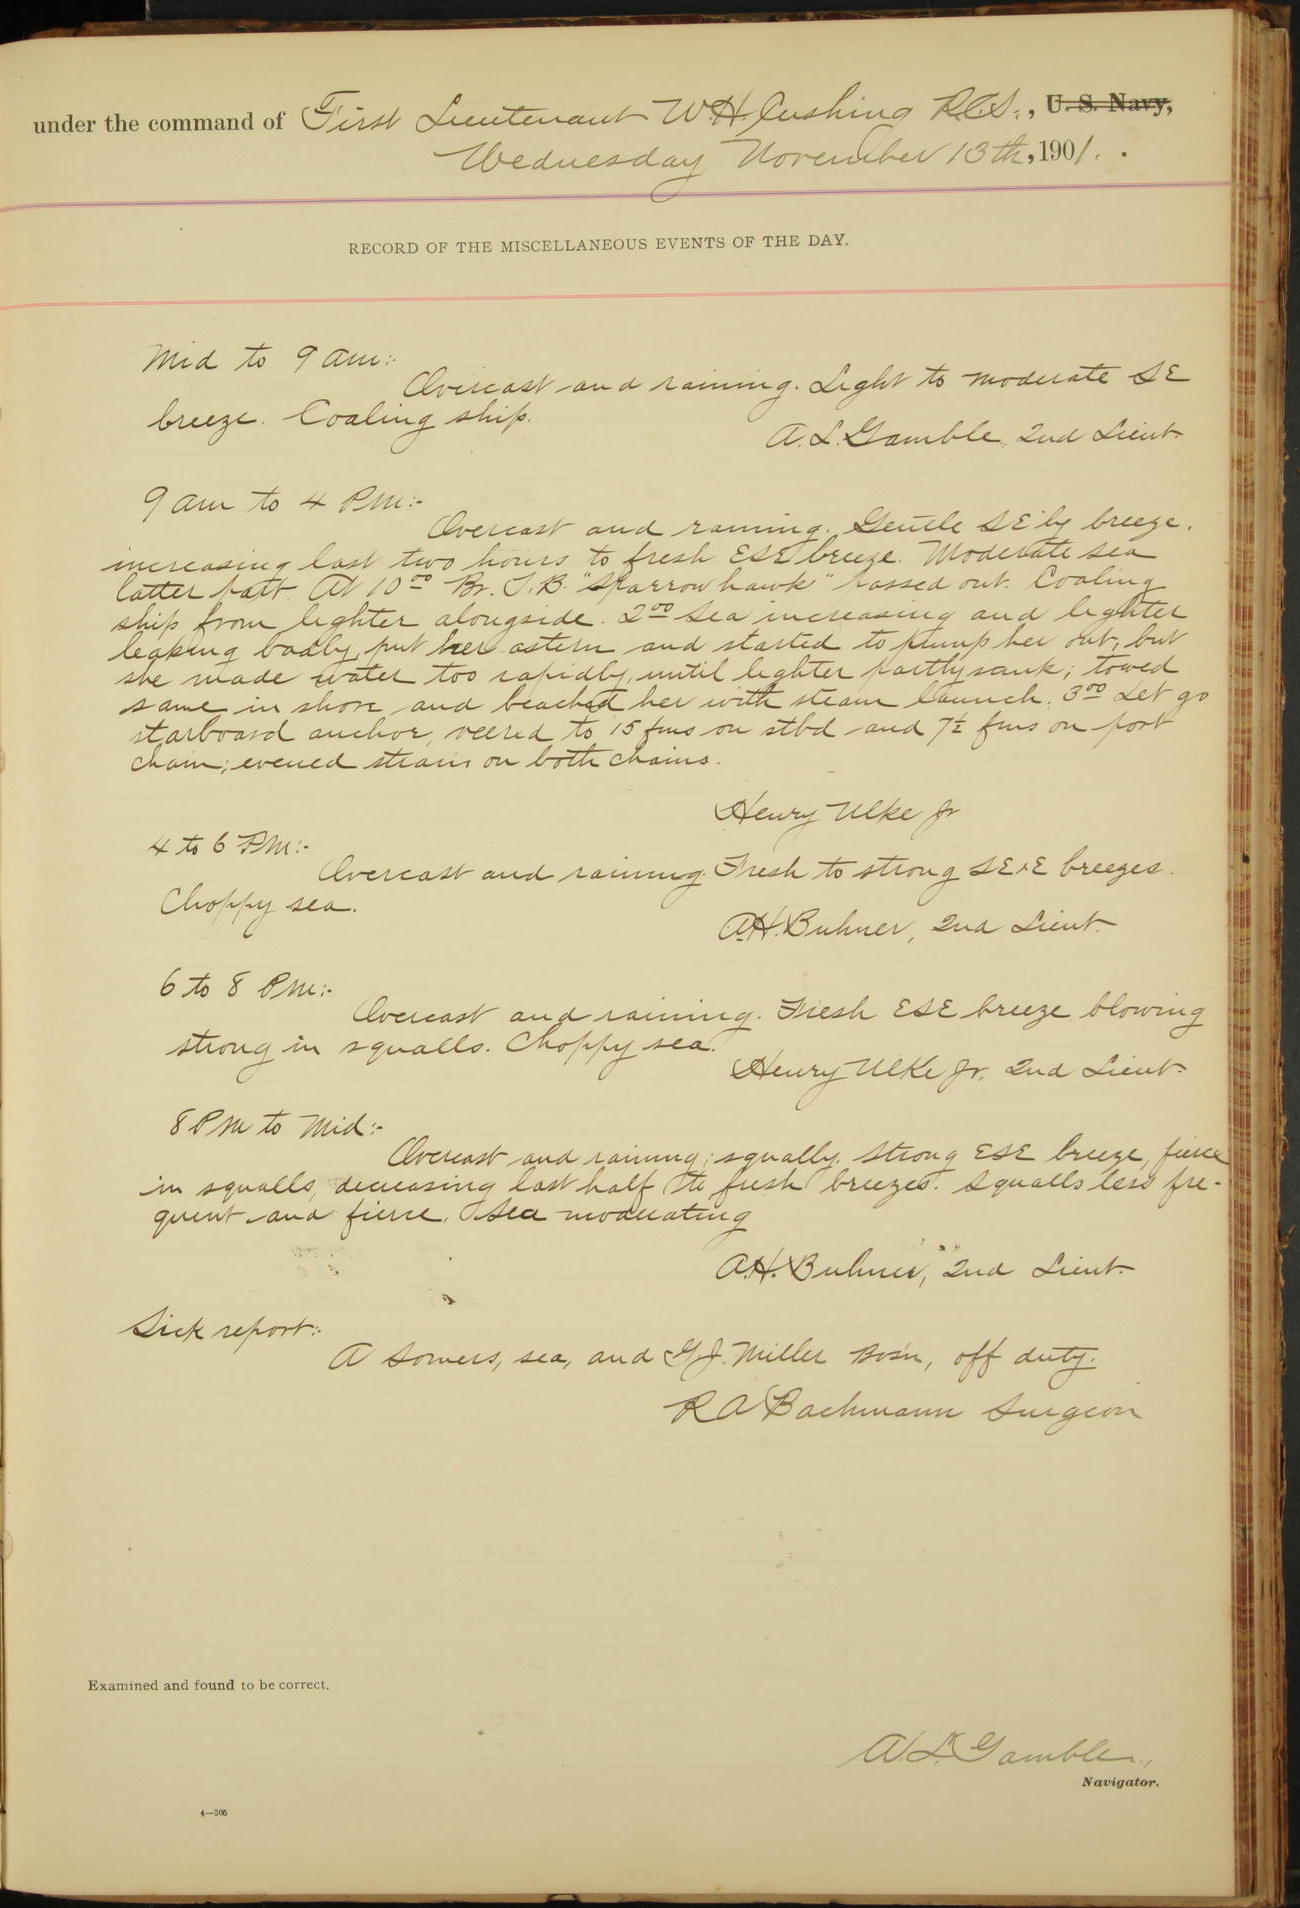 under the command of First Lieutenant W.H. Cushing R.C.S., U. S. Navy,
Wednesday November 13th, 1901.
RECORD OF THE MISCELLANEOUS EVENTS OF THE DAY.
Mid to 9 am:-
Overcast and raining. Light to moderate SE
breeze. Coaling ship.
A. L. Gamble, 2nd Lieut.
9 am to 4 PM:-
Overcast and raining. Gentle SE'ly breeze.
increasing last two hours to fresh ESE breeze. Moderate sea
latter part. At 10⁰⁰ Br. T.B. "Sparrowhawk" passed out. Coaling
ship from lighter alongside. 2⁰⁰ Sea increasing and lighter
leaking badly, put her astern and started to pump her out, but
she made water too rapidly, until lighter partly sank; towed
same in shore and beached her with steam launch. 3⁰⁰ Let go
starboard anchor, veered to 15 fms on stbd and 7½ fms on port
chain; evened strain on both chains.
Henry Ulke Jr
4 to 6 PM:-
Overcast and raining. Fresh to strong SExE breezes.
Choppy sea.
A.H. Buhner, 2nd Lieut.
6 to 8 PM:-
Overcast and raining. Fresh ESE breeze blowing
strong in squalls. Choppy sea.
Henry Ulke Jr. 2nd Lieut.
8 PM to Mid:-
Overcast and raining; squally. Strong ESE breeze, fierce
in squalls, decreasing last half to fresh breezes. Squalls less fre-
quent and fierce. Sea moderating
A.H. Buhner, 2nd Lieut.
Sick report:-
A Somers, sea, and G.J. Miller Bos'n, off duty.
R A Bachmann Surgeon
Examined and found to be correct.
A. L. Gamble,
Navigator.
4—206